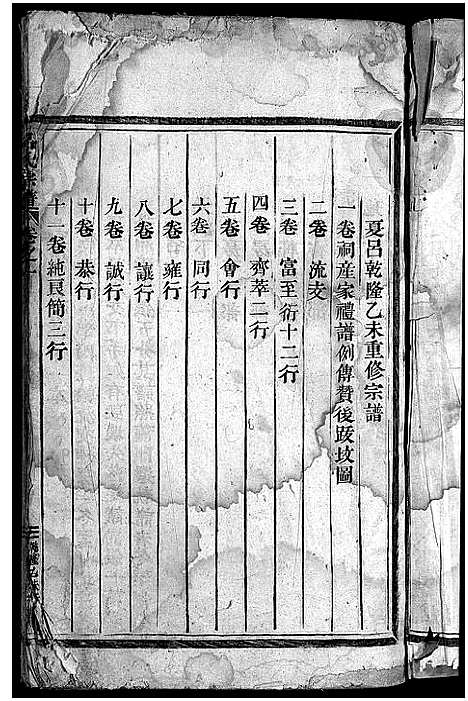 夏呂乾隆乙未重修宗譜
一卷祠産家禮譜例傳贊後跋坟圖
二卷 流支
三卷 富至衍十二行
四卷 齊萃二行
五卷 會行
六卷 同行
七卷 雍行
八卷 讓行
九卷 誠行
十卷 恭行
十一卷純良簡三行
氏宗譜 卷之一